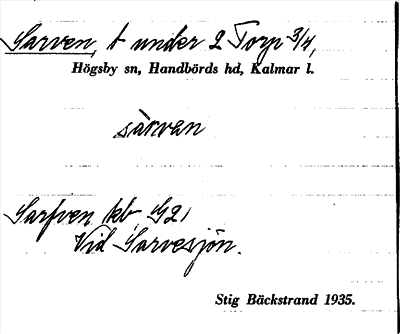 Sarven, t under 2 Torp 3/4,
Högsby sn, Handbörds hd, Kalmar l.
sàrvan
Sarfven kb, G2)
Vid Sarvesjön.
Stig Bäckstrand 1935.